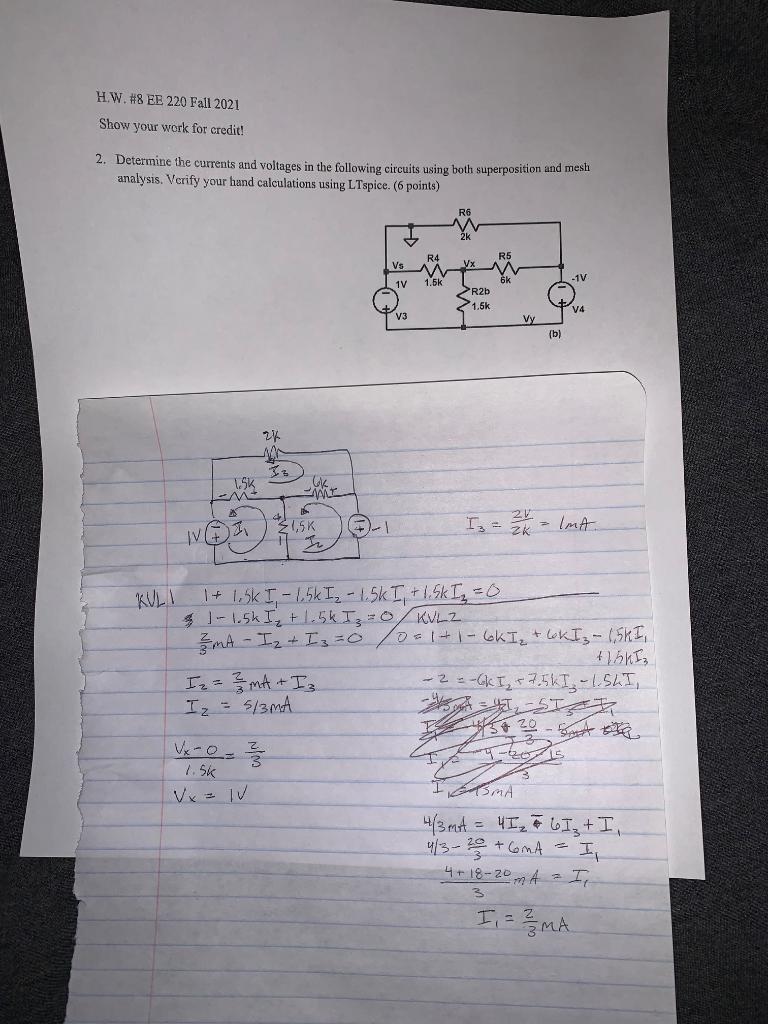 H.W. #8 EE 220 Fall 2021
Show your work for credit!
2. Determine the currents and voltages in the following circuits using both superposition and mesh
analysis. Verify your hand calculations using LTspice. (6 points)
R6
2k
Vs
R4
Vx
R5
1V
1.5k
6k
-1V
R2b
1.5k
V3
Vy
V4
(b)
2K
I3
1.5K
6K
1V
I1
1,5K
I2
-1
I3 = 2V/2K = 1mA
KVL1 1 + 1.5k I1 - 1.5k I2 - 1.5k I1 + 1.5k I3 = 0
1 - 1.5k I2 + 1.5k I3 = 0
KVL2
2/3 mA - I2 + I3 = 0
0 = 1 + 1 - 6k I2 + 6k I3 - 1,5k I1
+ 1.5k I3
I2 = 2/3 mA + I3
-2 = -6k I2 + 7.5k I3 - 1.5k I1
I2 = 5/3 mA
Vx - 0 / 1.5k = 2/3
Vx = 1V
4/3 mA = 4I2 - 6I3 + I1
4/3 - 20/3 + 6mA = I1
4 + 18 - 20 / 3 mA = I1
I1 = 2/3 mA